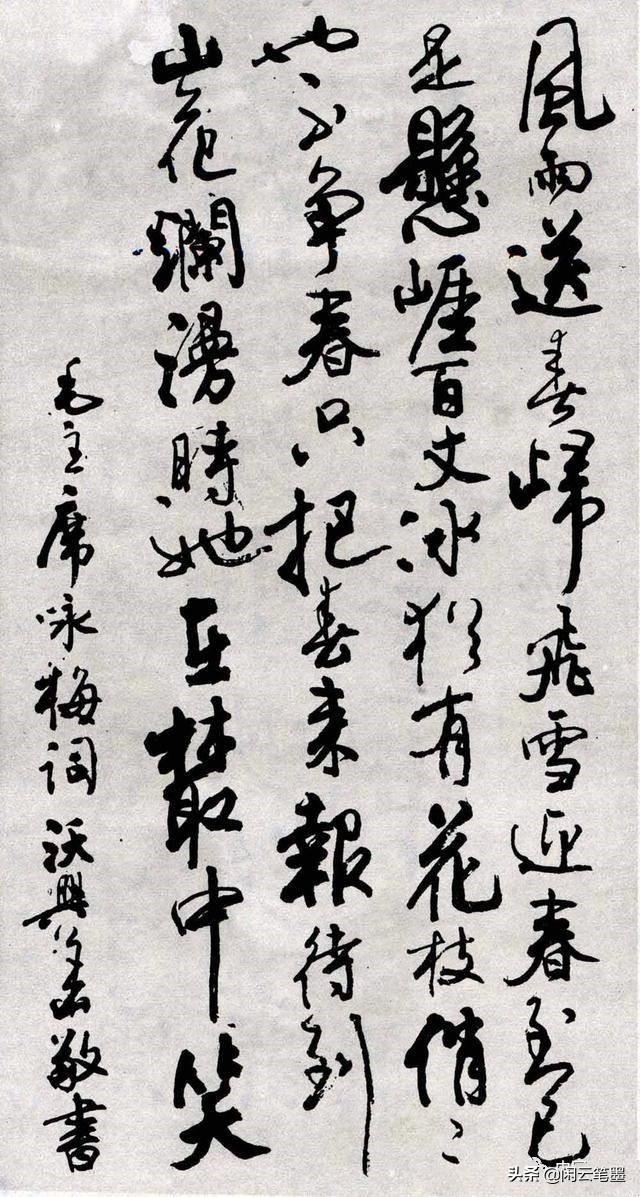 風雨送春歸飛雪迎春到已
是懸崖百丈冰猶有花枝俏〻
也不争春只把春来報待到
山花爛漫時她在叢中笑
毛主席咏梅詞 沃興華敬書
头条 @闲云笔墨